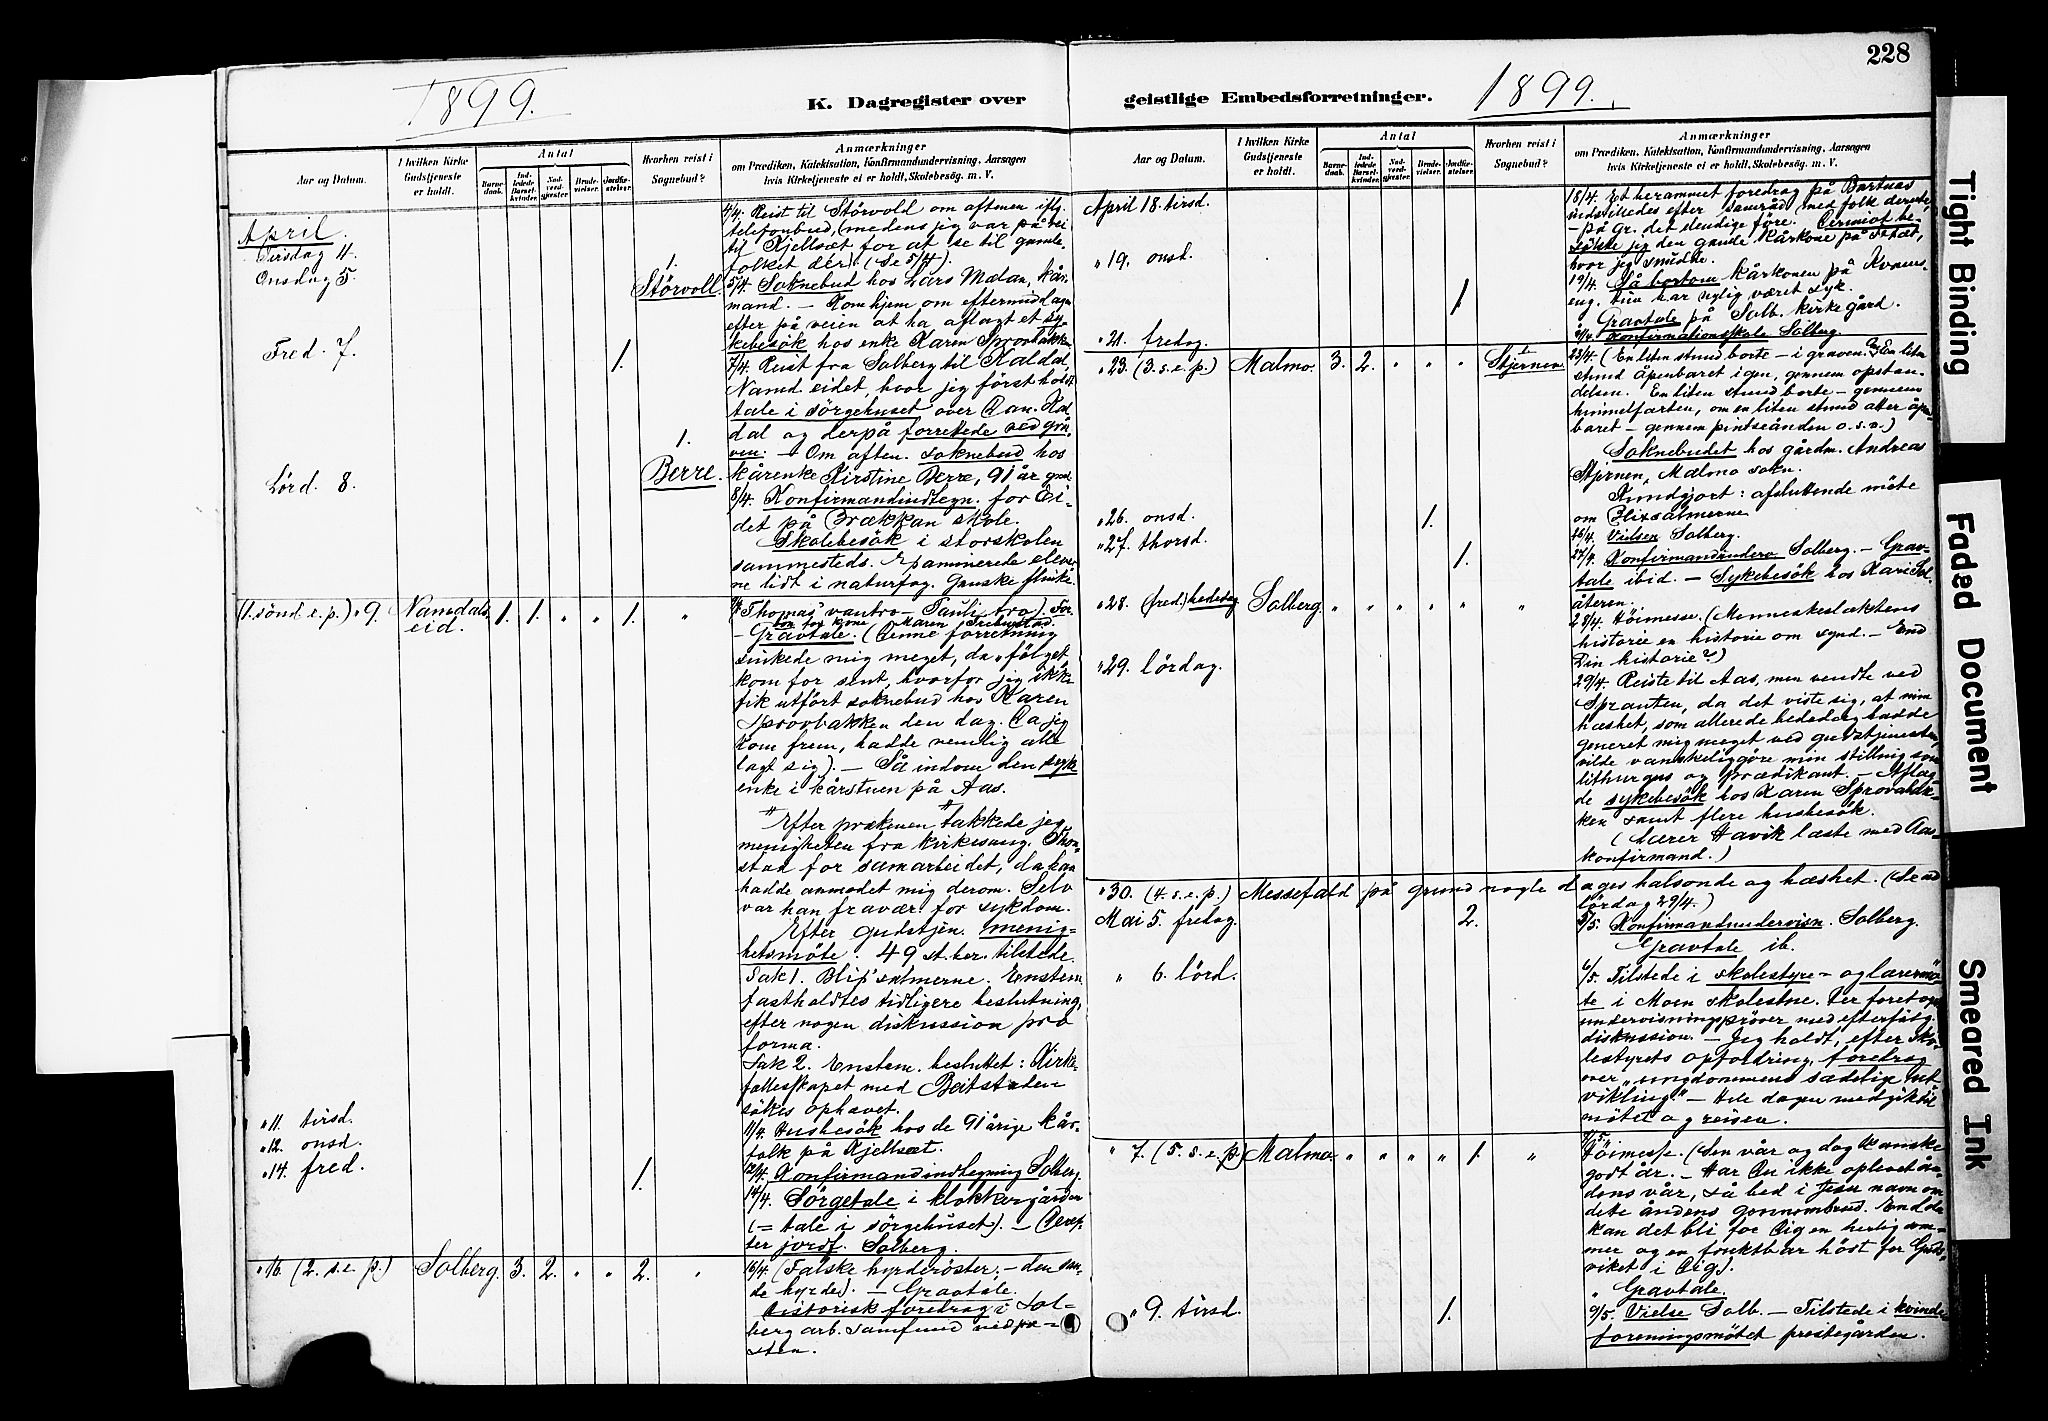 228
1899.
K. Dagregister over
geistlige Embedsforretninger.
1899.
Aar og Datum.
I hvilken Kirke Gudstjeneste er holdt.
Antal
Barnedaab.
Indledede Barselkvinder.
Nadverdgjester.
Brudevielser.
Jordfæstelser.
Hvorhen reist i Sognebud?
Anmærkninger
om Prædiken, Katekisation, Konfirmandundervisning, Aarsagen
hvis Kirketjeneste ei er holdt, Skolebesøg. m. V.
April.
Tirsdag 4.
4/4. Reist til Störvold om aftenen iflg.
telefonbud, (medens jeg var på vei
til Kjellsæt for at se til gamle-
folket dér). (Se 5/4).
Onsdag 5.
1.
Störvoll.
5/4. Soknebud hos Lars Mælan, kår-
mand. – Kom hjem om eftermiddagen
efter på veien at ha aflagt et sy-
kebesök hos enke Karen Sprovbakken
Fred. 7.
1.
7/4. Reist fra Solberg til Kaldal,
Namd.eidet, hvor jeg först holdt
tale i sörgehuset over Dan. Kal-
dal og derpå forrettede ved gra-
ven. – Om aften. soknebud hos
1.
Berre.
kårenke Kirstine Berre, 91 år gml.
Lörd. 8.
8/4. Konfirmandindtegn. for Ei-
det på Brækkan skole.
Skolebesök i storskolen
sammesteds. Examinerede elever-
ne lidt i naturfag. Ganske flinke.
(1. sönd. e. p.) " 9.
Namdals-
eid.
1. 1. " " 1. "
Thomas' vantro – Pauli tro).
– Gravtale. (Denne forretning
sinkede mig meget, da fölget
kom for sent, hvorfor jeg ikke
fik utfört soknebud hos Karen
Sprovbakken den dag. Da jeg
kom frem, hadde nemlig alle
lagt sig). – Så indom den syk
enke i kårstuen på Aas.
Efter prækenen takkede jeg
menigheten fra kirkesang. Thon-
stad for samarbeidet, da han
hadde anmodet mig derom. Selv
var han fravær. for sykdom.
Efter gudstjen. menig-
hetsmöte. 49 st.ber. tilstede.
Sak 1. Blix' salmerne. Enstem.
fastholdtes tidligere beslutning,
efter nogen diskussion pro
forma.
Sak 2. Enstem. besluttet: Kirke-
fællesskapet med Beitstaden
sökes ophævet.
" 11. tirsd.
11/4. Husbesök hos de 91 årige kår-
folk på Kjellsæt.
" 12. onsd.
12/4. Konfirmandindtegning Solberg.
" 14. fred.
1.
14/4. Sörgetale i klokkergården
(= tale i sörgehuset). – Deref-
ter jordf. Solberg.
" 16. (2. s. e. p.)
Solberg.
3. 2. " " 2. "
16/4. (Falske hyrderöster – den san-
de hyrde). – Gravtale.
Historisk foredrag i Sol-
berg arb. samfund ved pre-
sten.
Aar og Datum.
I hvilken Kirke Gudstjeneste er holdt.
Antal
Barnedaab.
Indledede Barselkvinder.
Nadverdgjester.
Brudevielser.
Jordfæstelser.
Hvorhen reist i Sognebud?
Anmærkninger
om Prædiken, Katekisation, Konfirmandundervisning, Aarsagen
hvis Kirketjeneste ei er holdt, Skolebesøg. m. V.
April 18. tirsd.
18/4. Et berammet foredrag på Bartnas
indstilledes efter samråd med folk derute,
– på gr. det elendige före. Derimot be-
sökte jeg den gamle kårkone på
hvor jeg
" 19. onsd.
1.
19/4. Så bortom kårkonen på Kvens-
eng. Hun har nylig været syk.
Gravtale på Solb. kirkegård.
" 21. fredag.
21/4. Konfirmationsskole Solberg.
" 23. (3. s. e. p.)
Malmo.
3. 2. " " "
1.
Stjernen.
23/4. (En liten stund borte – i graven. En liten
stund åpenbaret igen, gennem opstan-
delsen. En liten stund borte – gennem
himmelfarten, om en liten stund atter åpen-
baret – gennem pintseånden o. s. v.)
Soknebudet hos gårdm. Andreas
Stjernen, Malmo sokn.
Kundgjort: afsluttende möte
om Blixsalmerne.
" 26. onsd.
1.
26/4. Vielsen Solberg.
" 27. thorsd.
1.
27/4. Konfirmandunderv. Solberg. – Grav-
tale ibid. – Sykebesök hos Kari Sol-
" 28. (fred.) bededag
Solberg.
" " " " " "
28/4. Höimesse. (Menneskeslæktens
historie en historie om synd. – End
Din historie?)
" 29. lördag.
29/4. Reiste til Aas, men vendte ved
Spranten, da det viste sig, at min
hæshet, som allerede bededag hadde
generet mig meget ved gudstjenesten,
vilde vanskeliggöre min stilling som
lithurgus og prædikant. – Aflag-
de sykebesök hos Karen Sprovbak-
ken samt flere husbesök.
(Lærer Havik læste med Aas-
konfirmand.)
" 30. (4. s. e. p.) Messefald på grund nogle dages halsonde og hæshet. (Se
lördag 29/4.)
Mai 5. fredag.
2.
5/5. Konfirmandundervisn. Solberg.
Gravtale ib.
" 6. lörd.
6/5. Tilstede i skolestyre- og lærermö-
te i Moen skolestue. Der foretoges
undervisningspröver med efterfölg.
diskussion. – Jeg holdt, efter sko-
lestyrets opfordring, foredrag
over „ungdommens sædelige ut-
vikling“ – Hele dagen medgik til
mötet og reisen.
" 7. (5. s. e. p.)
Malmo.
" " " " 1. "
7/5. Höimesse. (Den vår og dog kanske
godt år. – Har Du ikke oplevet ån-
dens vår, så bed i Jesu navn om
dete åndens gennombrud. Endda
kan det bli for Dig en herlig som-
mer og en fruktbar höst for Guds-
riket i Dig).
" Gravtale.
" 9. tirsd.
1.
9/5. Vielse Solb. – Tilstede i kvinde-
foreningsmötet prestegården.
Tight Binding
Faded Document
Smeared Ink